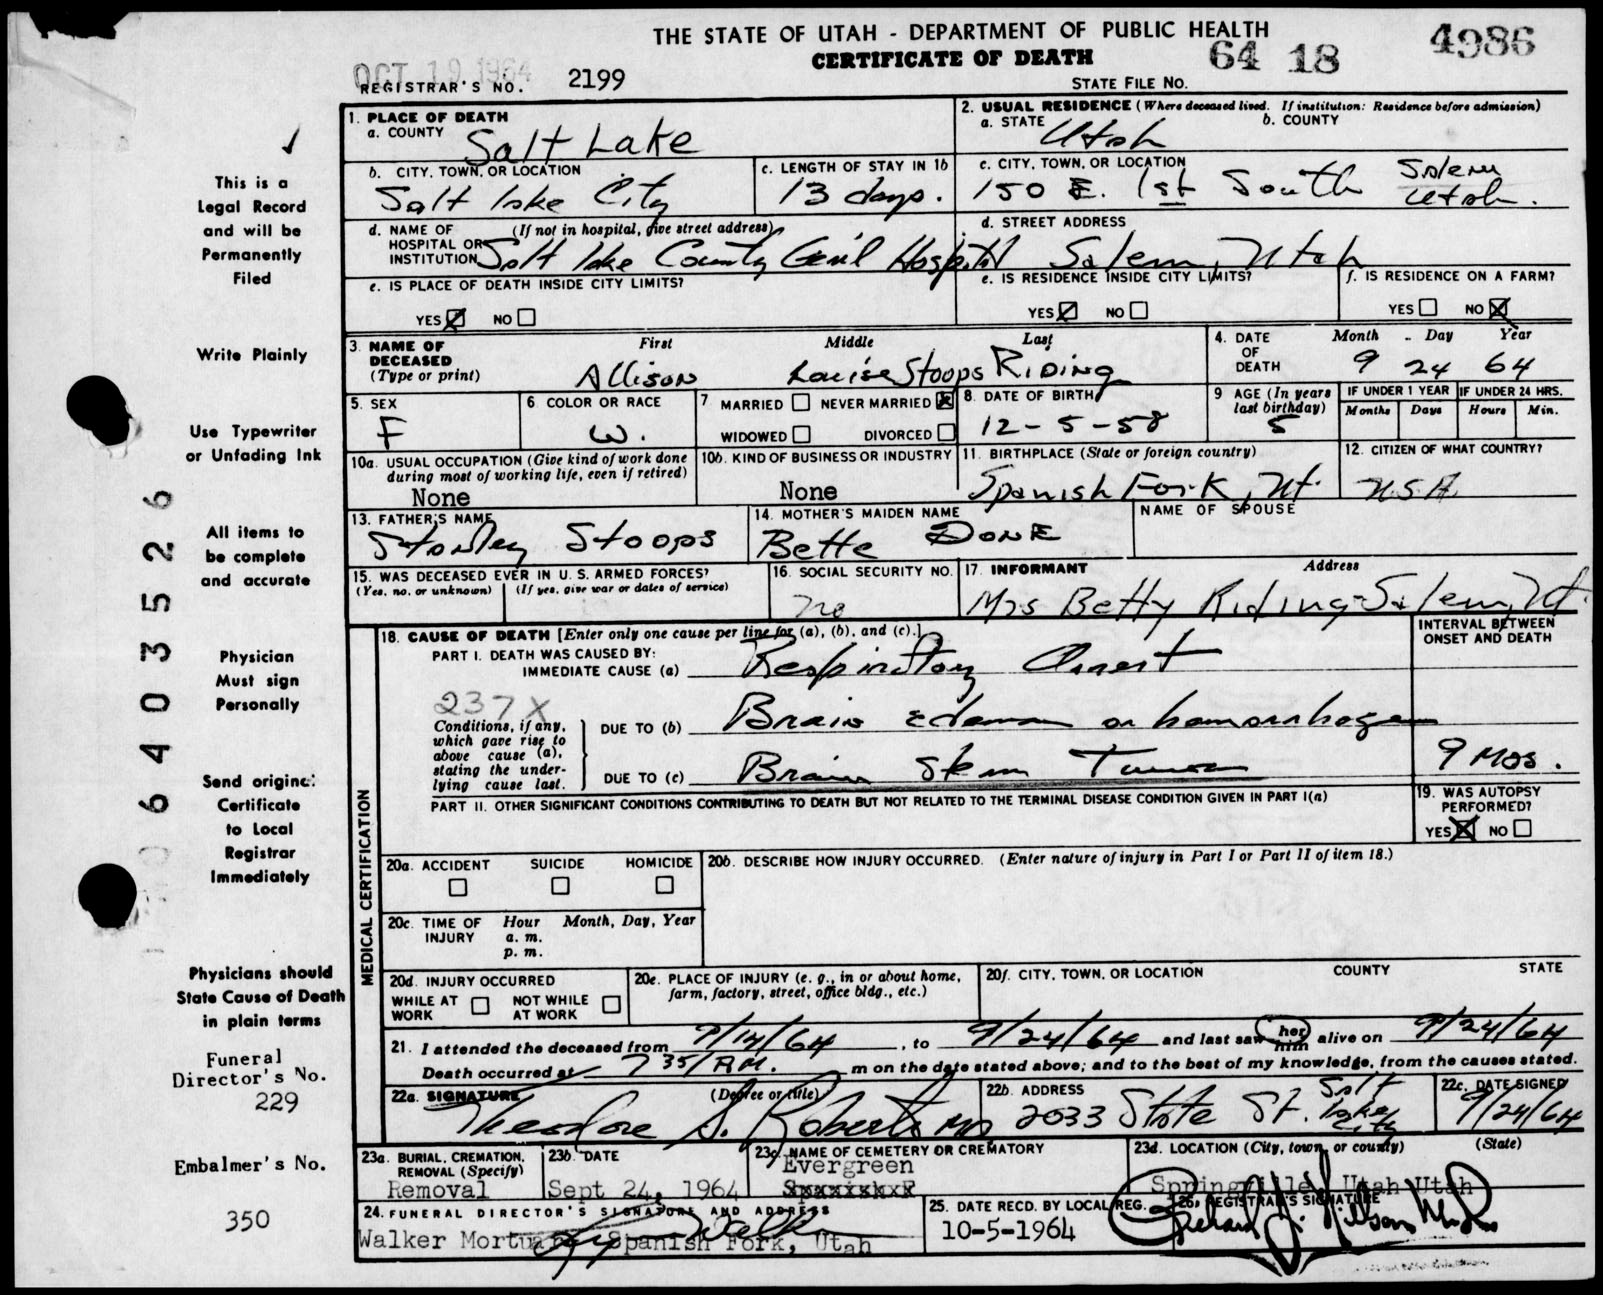 THE STATE OF UTAH - DEPARTMENT OF PUBLIC HEALTH
CERTIFICATE OF DEATH
64 18 4986
OCT 19 1964
REGISTRAR'S NO. 2199 STATE FILE NO.
1. PLACE OF DEATH
a. COUNTY Salt Lake
2. USUAL RESIDENCE (Where deceased lived. If institution: Residence before admission)
a. STATE Utah b. COUNTY
b. CITY, TOWN, OR LOCATION Salt Lake City
c. LENGTH OF STAY IN 1b 13 days.
c. CITY, TOWN, OR LOCATION 150 E. 1st South Salem Utah.
d. NAME OF HOSPITAL OR INSTITUTION (If not in hospital, give street address) Salt Lake County Genl Hospital
d. STREET ADDRESS Salem, Utah
e. IS PLACE OF DEATH INSIDE CITY LIMITS?
YES NO
e. IS RESIDENCE INSIDE CITY LIMITS?
YES NO
f. IS RESIDENCE ON A FARM?
YES NO
3. NAME OF DECEASED (Type or print)
First Middle Last
Allison Louise Stoops Riding
4. DATE OF DEATH Month Day Year
9 24 64
5. SEX F
6. COLOR OR RACE W.
7. MARRIED NEVER MARRIED
WIDOWED DIVORCED
8. DATE OF BIRTH 12-5-58
9 AGE (In years last birthday) 5
IF UNDER 1 YEAR Months Days
IF UNDER 24 HRS. Hours Min.
10a. USUAL OCCUPATION (Give kind of work done during most of working life, even if retired)
None
10b. KIND OF BUSINESS OR INDUSTRY
None
11. BIRTHPLACE (State or foreign country)
Spanish Fork, Ut.
12. CITIZEN OF WHAT COUNTRY?
USA
13. FATHER'S NAME
Stanley Stoops
14. MOTHER'S MAIDEN NAME
Bette Done
NAME OF SPOUSE
15. WAS DECEASED EVER IN U. S. ARMED FORCES?
(Yes, no, or unknown) (If yes, give war or dates of service)
16. SOCIAL SECURITY NO.
no
17. INFORMANT Address
Mrs Betty Riding-Salem, Ut.
MEDICAL CERTIFICATION
18. CAUSE OF DEATH [Enter only one cause per line for (a), (b), and (c).]
INTERVAL BETWEEN ONSET AND DEATH
PART I. DEATH WAS CAUSED BY:
IMMEDIATE CAUSE (a) Respiratory Arrest
237X
Conditions, if any, which gave rise to above cause (a), stating the underlying cause last.
DUE TO (b) Brain edema or hemorrhage
DUE TO (c) Brain Stem Tumor 9 Mos.
PART II. OTHER SIGNIFICANT CONDITIONS CONTRIBUTING TO DEATH BUT NOT RELATED TO THE TERMINAL DISEASE CONDITION GIVEN IN PART I(a)
19. WAS AUTOPSY PERFORMED?
YES NO
20a. ACCIDENT SUICIDE HOMICIDE
20b. DESCRIBE HOW INJURY OCCURRED. (Enter nature of injury in Part I or Part II of item 18.)
20c. TIME OF INJURY Hour Month, Day, Year
a. m.
p. m.
20d. INJURY OCCURRED
WHILE AT WORK NOT WHILE AT WORK
20e. PLACE OF INJURY (e. g., in or about home, farm, factory, street, office bldg., etc.)
20f. CITY, TOWN, OR LOCATION COUNTY STATE
21. I attended the deceased from 9/14/64, to 9/24/64 and last saw her him alive on 9/24/64
Death occurred at 7 35/AM. m on the date stated above; and to the best of my knowledge, from the causes stated.
22a. SIGNATURE (Degree or title)
Theodore S. Roberts MD
22b. ADDRESS
2033 State St. Salt Lake City
22c. DATE SIGNED
9/24/64
23a. BURIAL, CREMATION, REMOVAL (Specify)
Removal
23b. DATE
Sept 24, 1964
23c. NAME OF CEMETERY OR CREMATORY
Evergreen
23d. LOCATION (City, town, or county) (State)
Springville, Utah Utah
24. FUNERAL DIRECTOR'S SIGNATURE AND ADDRESS
Walker Mortuary Spanish Fork, Utah
25. DATE RECD. BY LOCAL REG.
10-5-1964
26. REGISTRAR'S SIGNATURE
This is a
Legal Record
and will be
Permanently
Filed
Write Plainly
Use Typewriter
or Unfading Ink
All items to
be complete
and accurate
Physician
Must sign
Personally
Send original
Certificate
to Local
Registrar
Immediately
Physicians should
State Cause of Death
in plain terms
Funeral
Director's No.
229
Embalmer's No.
350
64003526